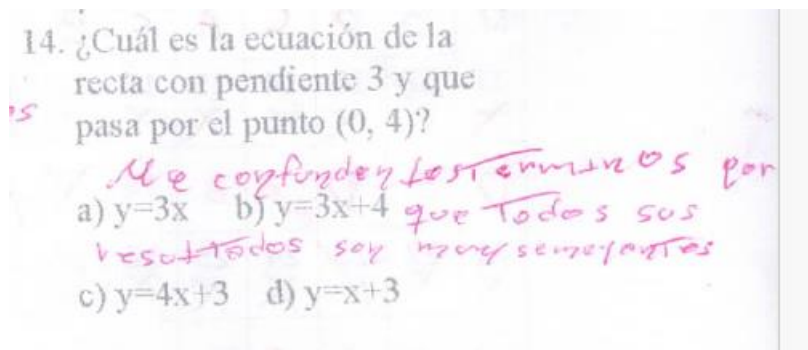 14. ¿Cuál es la ecuación de la
recta con pendiente 3 y que
os
pasa por el punto (0, 4)?
Me confunden los Terminos por
a) y=3x b) y=3x+4 que Todos sus
resultados son muy semejantes
c) y=4x+3 d) y=x+3